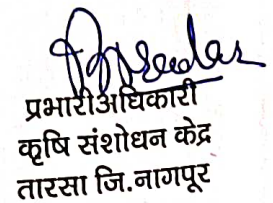 प्रभारीअधिकारी
कृषि संशोधन केद्र
तारसा जि.नागपूर